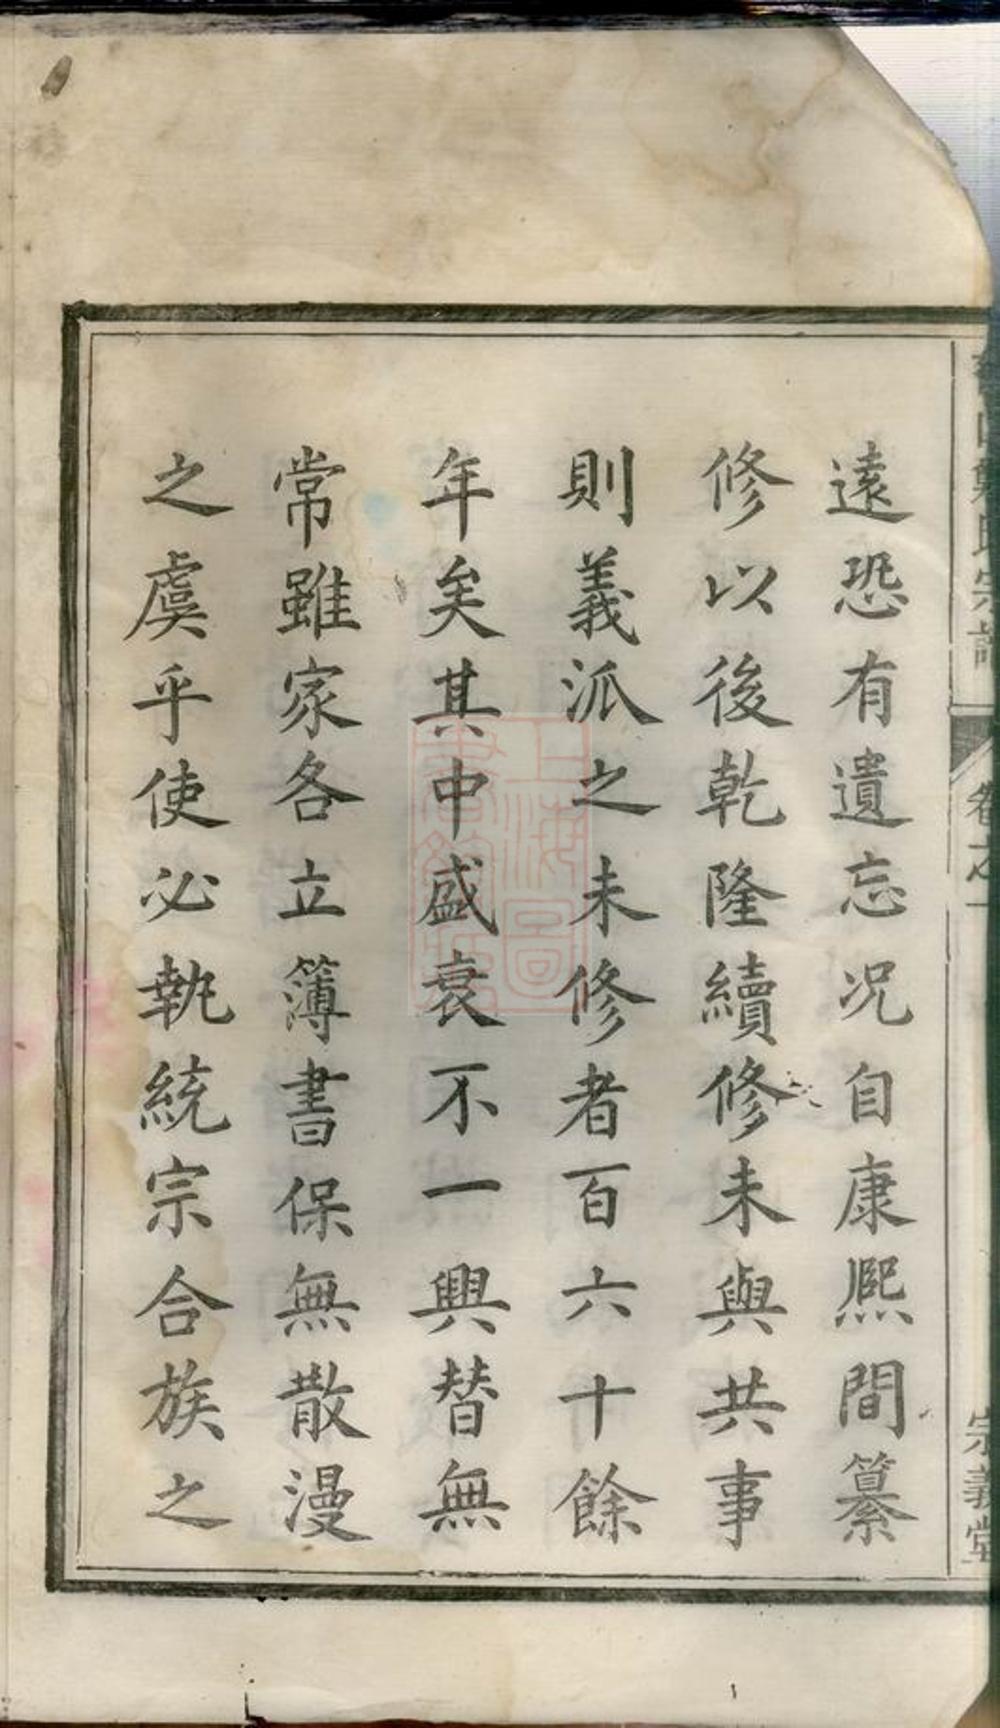 遠恐有遺忘况自康熙間纂
修以後乾隆續修未與共事
則義派之未修者百六十餘
年矣其中盛衰不一興替無
常雖家各立簿書保無散漫
之虞乎使必執統宗合族之
鄭氏宗譜
卷之一
宗義堂
上海圖書館藏